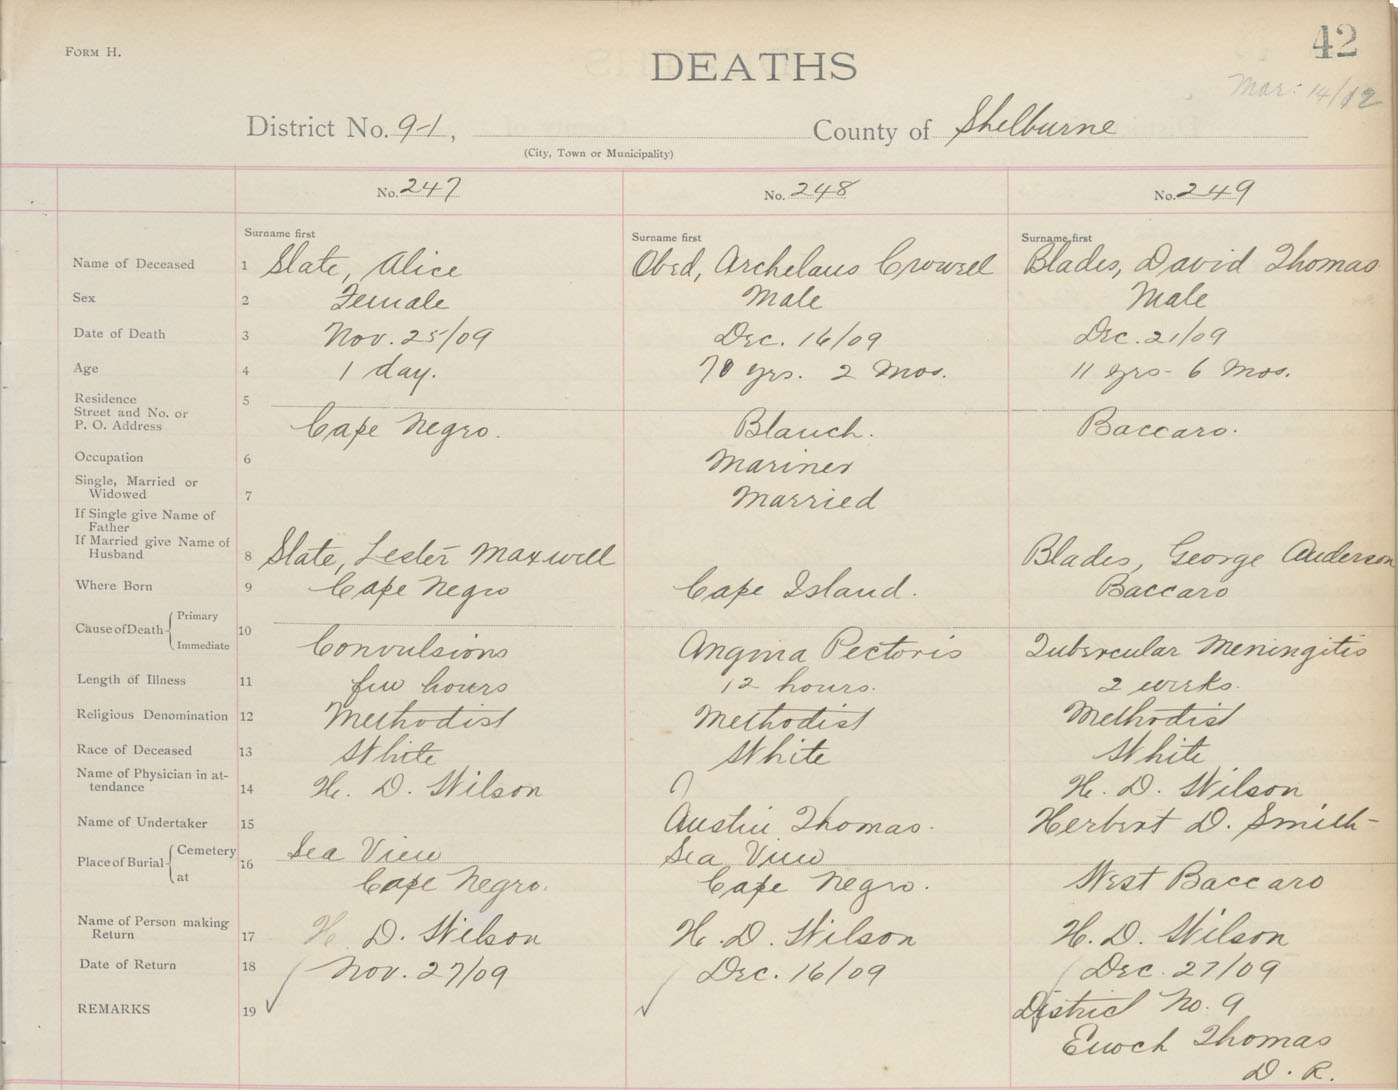 FORM H.
42
DEATHS
Mar: 14/12
District No. 9-1, County of Shelburne
(City, Town or Municipality)
No. 247 No. 248 No. 249
Surname first Surname first Surname first
Name of Deceased 1 Slate, Alice Obed, Archelaus Crowell Blades, David Thomas
Sex 2 Female Male Male
Date of Death 3 Nov. 25/09 Dec. 16/09 Dec. 21/09
Age 4 1 day. 70 yrs. 2 Mos. 11 yrs- 6 Mos.
Residence 5
Street and No. or
P. O. Address Cape Negro. Blanch. Baccaro.
Occupation 6 Mariner
Single, Married or
Widowed 7 Married
If Single give Name of
Father
If Married give Name of
Husband 8 Slate, Lester Maxwell Blades, George Anderson
Where Born 9 Cape Negro Cape Island. Baccaro
Cause of Death Primary
10
Immediate Convulsions Angina Pectoris Tubercular Meningitis
Length of Illness 11 few hours 12 hours. 2 weeks.
Religious Denomination 12 Methodist Methodist Methodist
Race of Deceased 13 White White White
Name of Physician in at-
tendance 14 H. D. Wilson H. D. Wilson
Name of Undertaker 15 Austin Thomas. Herbert D. Smith-
Place of Burial Cemetery 16 Sea View Sea View
at Cape Negro. Cape Negro. West Baccaro
Name of Person making
Return 17 H D. Wilson H. D. Wilson H. D. Wilson
Date of Return 18 Nov. 27/09 Dec. 16/09 Dec. 27/09
REMARKS 19 District No. 9
Enoch Thomas
D. R.